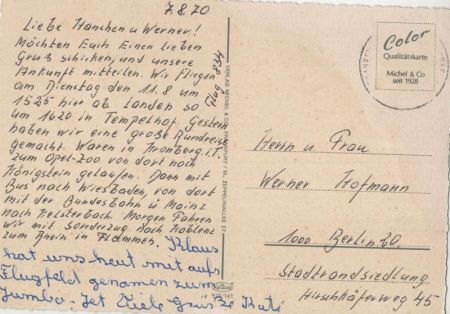 7.8.70
Liebe Hannchen u Werner!
Möchten Euch Einen lieben
Gruß schicken, und unsere
Ankunft mitteilen. Wir Fliegen
am Dienstag den 11.8 um
1525 hier ab Landen so
um 1620 in Tempelhof. Gestern
haben wir eine große Rundreise
gemacht. Waren in Kronberg i.T.
zum Opel-Zoo von dort nach
Königstein gelaufen. Dann mit
Bus nach Wiesbaden, von dort
mit der Bundesbahn ü Mainz
nach Kelsterbach. Morgen Fahren
wir mit Sonderzug nach Koblenz
zum Rhein in Flammen. Klaus
hat uns heut mit aufs
Flugfeld genomen zum
Jumbo-Jet Viele Grüße Kati
Flug 834
VERLAG MICHEL & CO FRANKFURT / M. ZEPPELINALLEE
Color
Qualitätskarte
Michel & Co
seit 1928
Herrn u. Frau
Werner Hofmann
1000 Berlin 20.
Stadtrandsiedlung
Hirschkäferweg 45